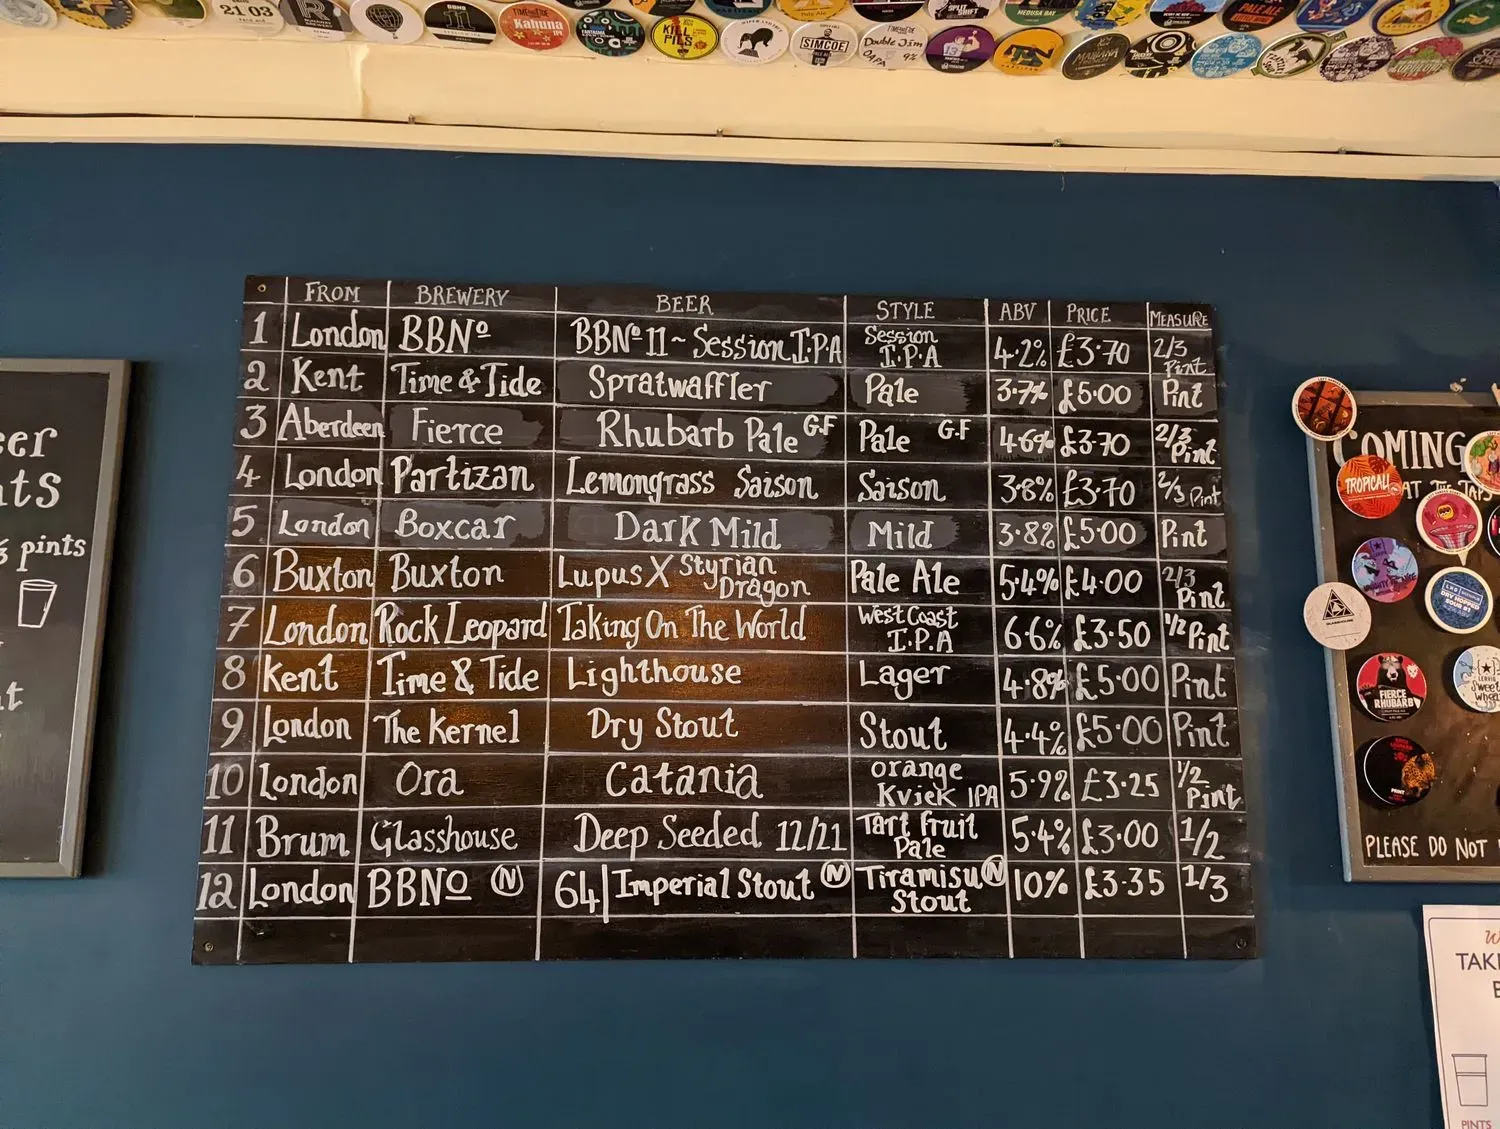 21.03
BBNO
11
Kahuna
KILL
PILS
SIMCOE
Double Jim
DAPA 9%
SPLIT
SHIFT
MEDUSA BAY
PALE ALE
FROM BREWERY BEER STYLE ABV PRICE MEASURE
1 London BBNº BBNº 11 ~ Session I.P.A Session I.P.A 4.2% £3.70 2/3 Pint
2 Kent Time & Tide Spratwaffler Pale 3.7% £5.00 Pint
3 Aberdeen Fierce Rhubarb Pale GF Pale GF 4.6% £3.70 2/3 Pint
4 London Partizan Lemongrass Saison Saison 3.8% £3.70 2/3 Pint
5 London Boxcar Dark Mild Mild 3.8% £5.00 Pint
6 Buxton Buxton Lupus X Styrian Dragon Pale Ale 5.4% £4.00 2/3 Pint
7 London Rock Leopard Taking On The World West Coast I.P.A 6.6% £3.50 1/2 Pint
8 Kent Time & Tide Lighthouse Lager 4.8% £5.00 Pint
9 London The Kernel Dry Stout Stout 4.4% £5.00 Pint
10 London Ora Catania Orange Kviek IPA 5.9% £3.25 1/2 Pint
11 Brum Glasshouse Deep Seeded 12/21 Tart fruit Pale 5.4% £3.00 1/2
12 London BBNO N 64| Imperial Stout N Tiramisu N Stout 10% £3.35 1/3
eer
nts
pints
COMING
AT THE TAPS
TROPICALI
DRY HOPPED
SOUR #1
GLASSHOUSE
FIERCE
RHUBARB
Sweet
PLEASE DO NOT
TAK
PINTS